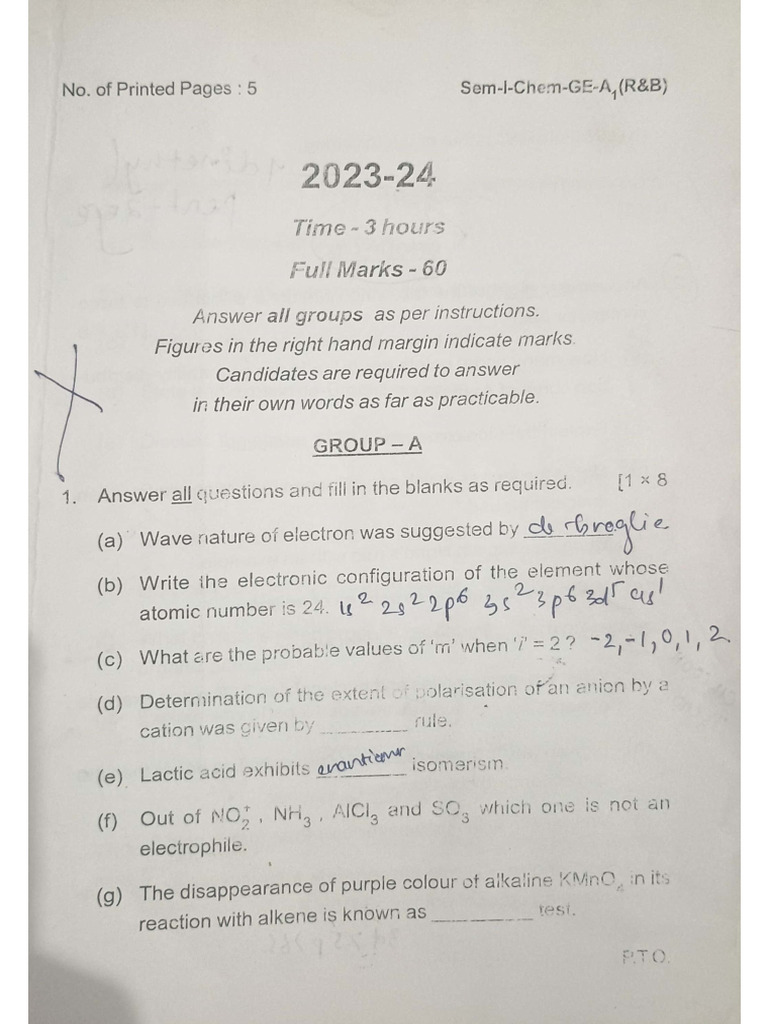 No. of Printed Pages : 5 Sem-I-Chem-GE-A₁(R&B)
2023-24
Time - 3 hours
Full Marks - 60
Answer all groups as per instructions.
Figures in the right hand margin indicate marks.
Candidates are required to answer
in their own words as far as practicable.
GROUP – A
1. Answer all questions and fill in the blanks as required. [1 × 8
(a) Wave nature of electron was suggested by de-broglie
(b) Write the electronic configuration of the element whose
atomic number is 24. 1s² 2s² 2p⁶ 3s² 3p⁶ 3d⁵ 4s¹
(c) What are the probable values of 'm' when 'l' = 2 ? -2, -1, 0, 1, 2
(d) Determination of the extent of polarisation of an anion by a
cation was given by _________ rule.
(e) Lactic acid exhibits enantiomer isomerism.
(f) Out of NO₂⁺, NH₃, AlCl₃ and SO₃ which one is not an
electrophile.
(g) The disappearance of purple colour of alkaline KMnO₄ in its
reaction with alkene is known as _________ test.
P.T.O.